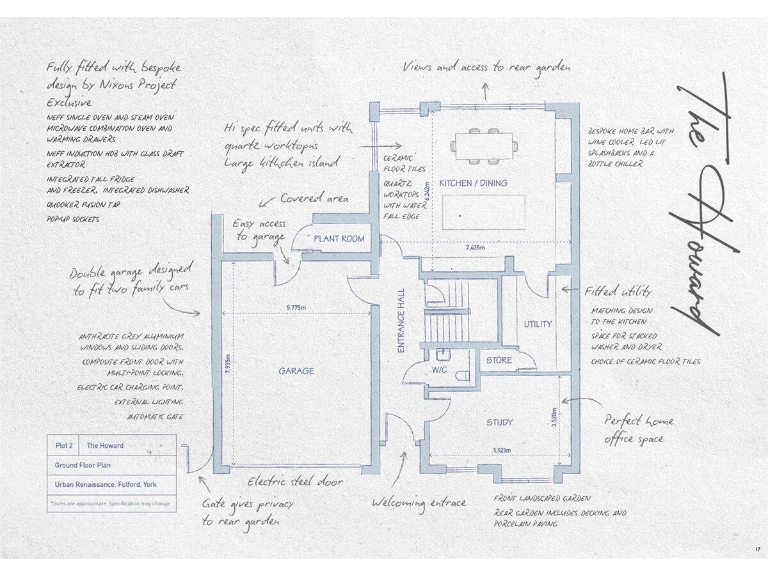 Fully fitted with bespoke
design by Nixons Project
Exclusive
NEFF SINGLE OVEN AND STEAM OVEN
MICROWAVE COMBINATION OVEN AND
WARMING DRAWERS
NEFF INDUCTION HOB WITH GLASS DRAFT
EXTRACTOR
INTEGRATED TALL FRIDGE
AND FREEZER, INTEGRATED DISHWASHER
QUOOKER FUSION TAP
POP-UP SOCKETS
Views and access to rear garden
Hi spec fitted units with
quartz worktopns
Large kithchen island
CERAMIC
FLOOR TILES
QUARTZ
WORKTOPS
WITH WATER
FALL EDGE
KITCHEN / DINING
7.435m
BESPOKE HOME BAR WITH
WINE COOLER LED LIT
SPLASHBACKS AND A
BOTTLE CHILLER
The Howard
Covered area
Easy access
to garage
PLANT ROOM
Double garage designed
to fit two family cars
5.775m
7.935m
GARAGE
ENTRANCE HALL
UTILITY
STORE
W/C
Fitted utility
MATCHING DESIGN
TO THE KITCHEN
SPACE FOR STACKED
WASHER AND DRYER
CHOICE OF CERAMIC FLOOR TILES
ANTHRACITE GREY ALUMINIUM
WINDOWS AND SLIDING DOORS.
COMPOSITE FRONT DOOR WITH
MULTI-POINT LOCKING.
ELECTRIC CAR CHARGING POINT.
EXTERNAL LIGHTING.
AUTOMATIC GATE
STUDY
5.523m
3.520m
Perfect home
office space
Plot 2 The Howard
Ground Floor Plan
Urban Renaissance, Fulford, York
*Sizes are approximate. Specification may change
Electric steel door
Gate gives privacy
to rear garden
Welcoming entrace
FRONT LANDSCAPED GARDEN
REAR GARDEN INCLUDES DECKING AND
PORCELAIN PAVING
17